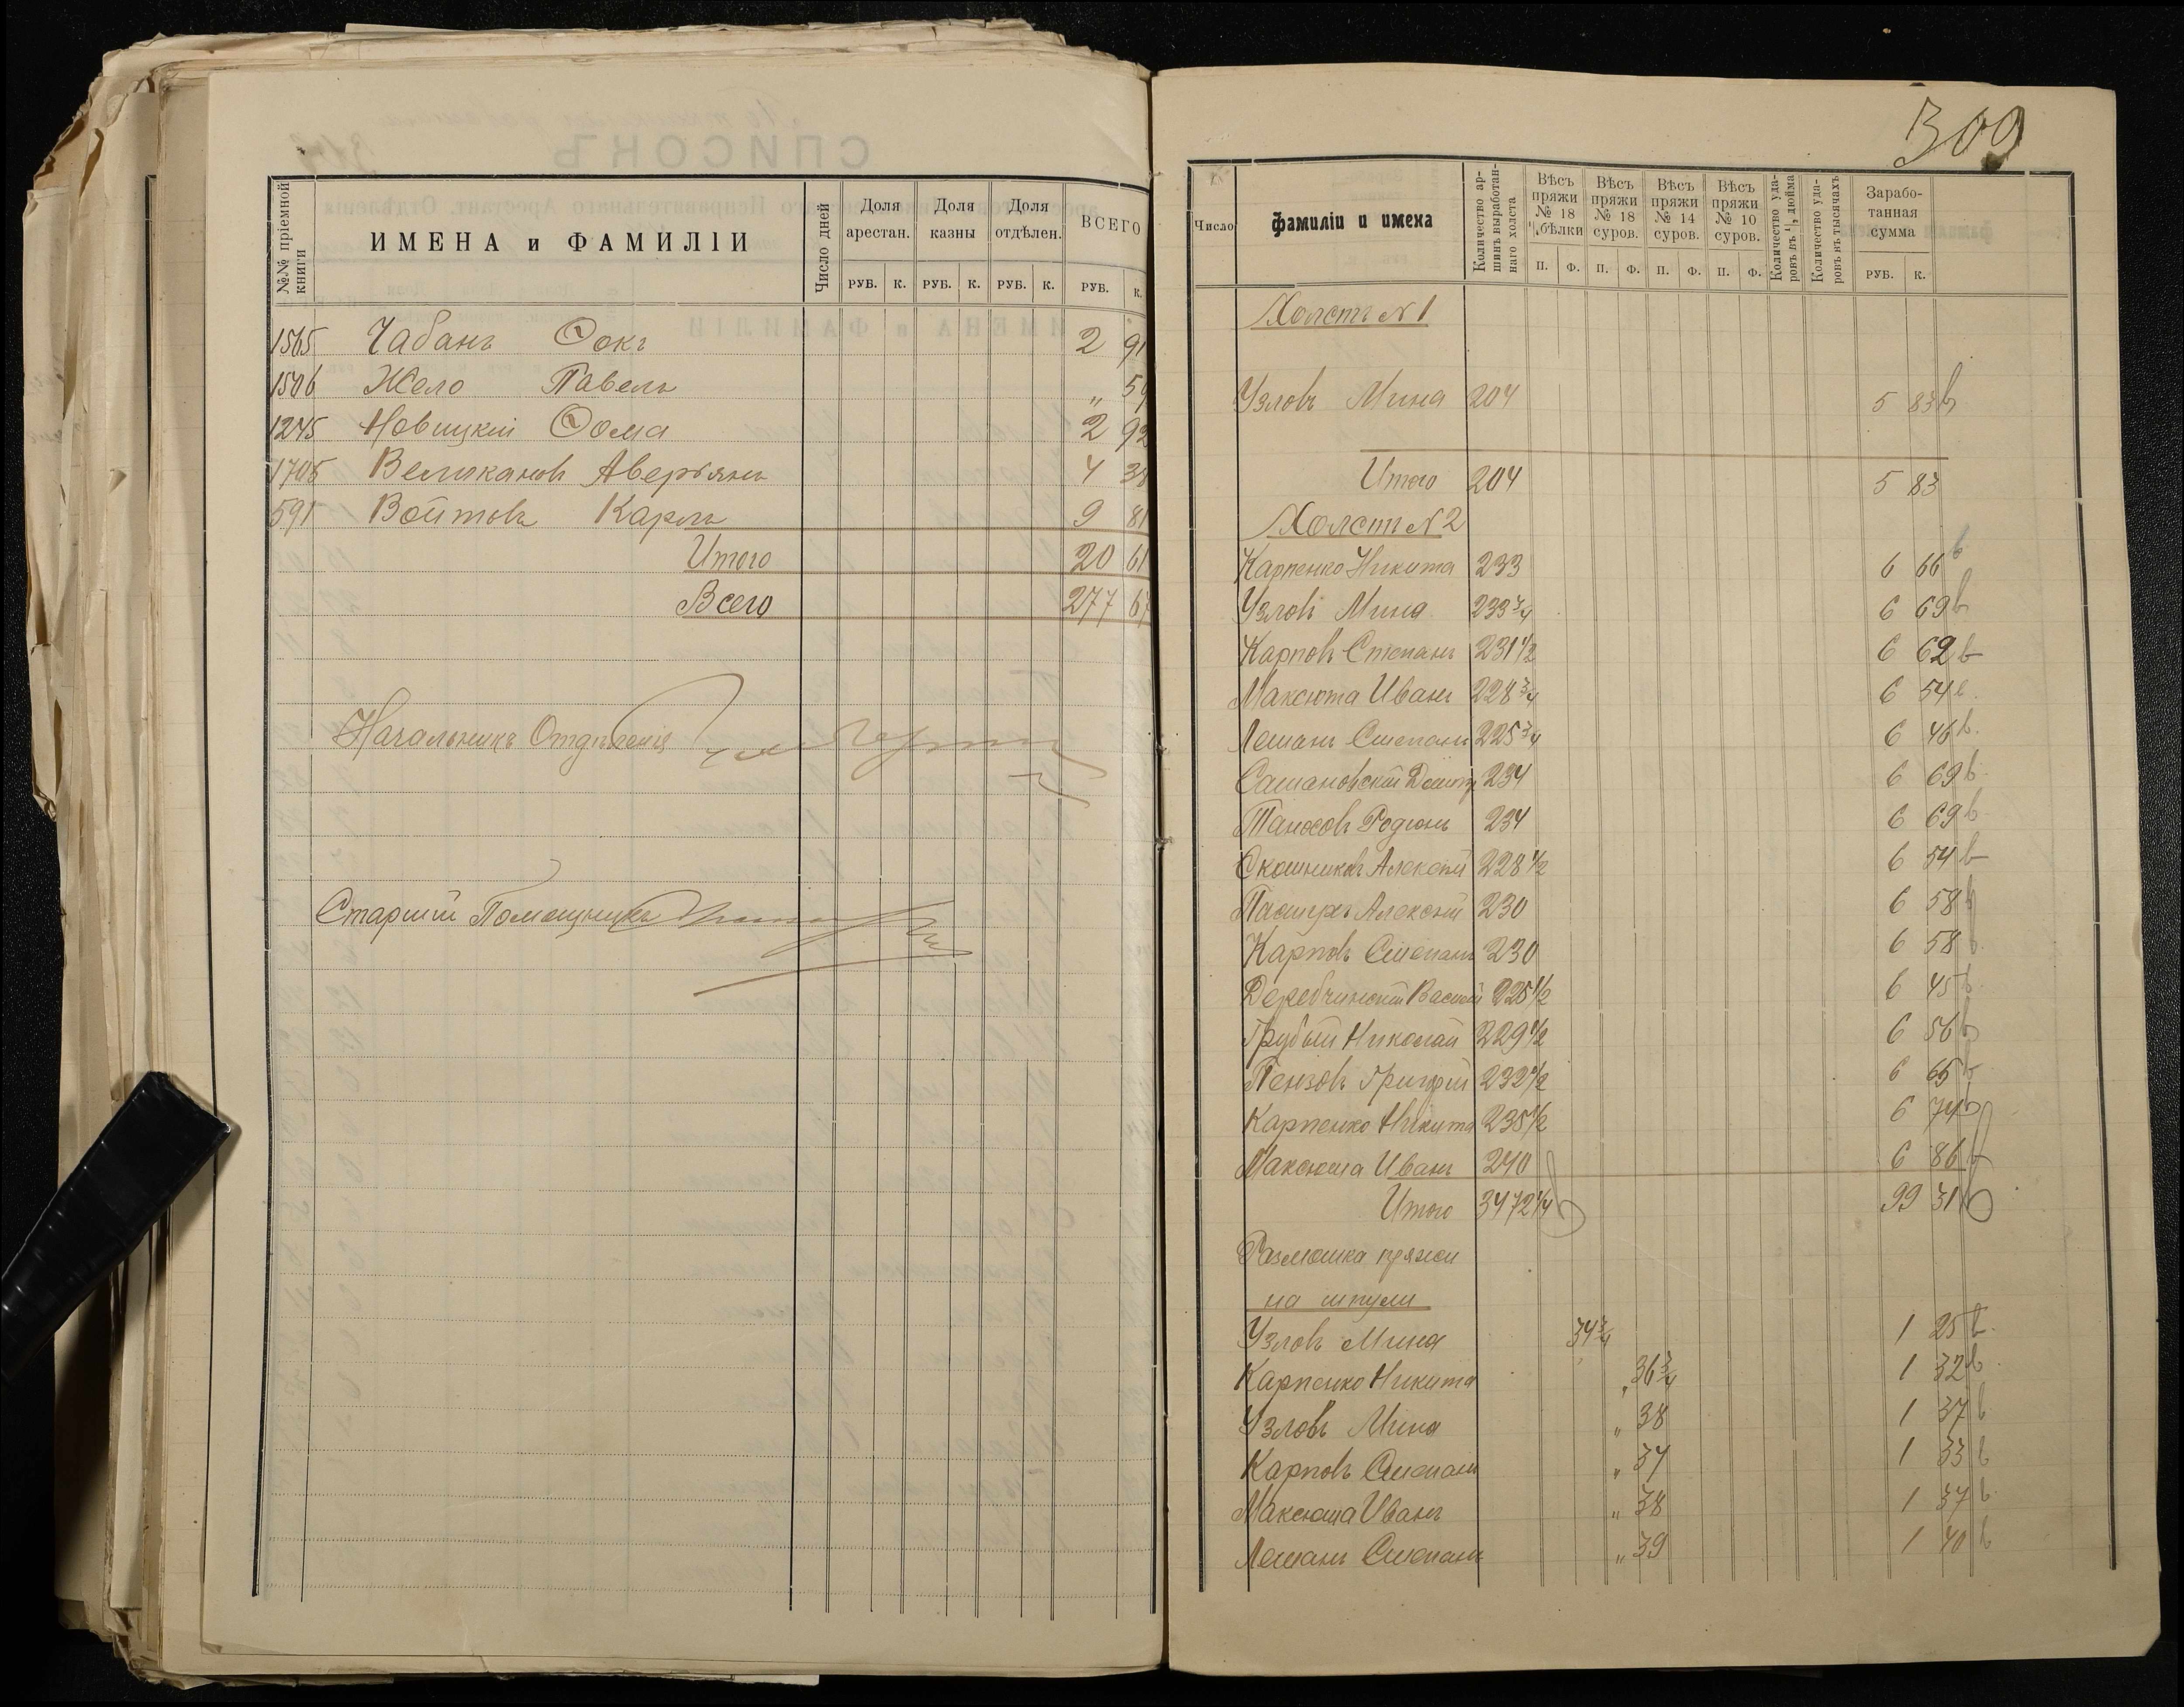 №№ пріемной книги
ИМЕНА и ФАМИЛІИ
Число дней
Доля арестан.
Доля казны
Доля отдѣлен.
ВСЕГО
РУБ. К. РУБ. К. РУБ. К. РУБ. К.
1565 Чабанъ Ѳокъ 2 91
1506 Жело Павелъ „ 59
1245 Новицкій Ѳома 2 92
1705 Великановъ Аверьянъ 4 38
591 Войтовъ Карлъ 9 81
Итого 20 61
Всего 277 67
Начальникъ Отдѣленія
Старшій Помощникъ
309
Число
фамиліи и имена
Количество аршинъ выработаннаго холста
Вѣсъ пряжи № 18 ½ бѣлки
Вѣсъ пряжи № 18 суров.
Вѣсъ пряжи № 14 суров.
Вѣсъ пряжи № 10 суров.
Количество ударовъ въ ¼ дюйма
Количество ударовъ въ тысячахъ
Заработанная сумма
П. Ф. П. Ф. П. Ф. П. Ф. РУБ. К.
Холстъ № 1
Узловъ Мина 204 5 83
Итого 204 5 83
Холстъ № 2
Карпенко Никита 233 6 66
Узловъ Мина 233 3/4 6 69
Карповъ Степанъ 231 1/2 6 62
Максюта Иванъ 228 3/4 6 54
Лешанъ Степанъ 225 3/4 6 46
234 6 69
Родіонъ 234 6 69
Алексѣй 228 1/2 6 54
Алексѣй 230 6 58
Карповъ Степанъ 230 6 58
Василій 225 1/2 6 45
Грубый Николай 229 1/2 6 56
Пензовъ Григорій 232 1/2 6 65
Карпенко Никита 235 1/2 6 74
Максюта Иванъ 240 6 86
Итого 3472 1/4 99 31
Размотка пряжи
на шпули
Узловъ Мина 34 3/4 1 25
Карпенко Никита „ 36 3/4 1 32
Узловъ Мина „ 38 1 37
Карповъ Степанъ „ 37 1 33
Максюта Иванъ „ 38 1 37
Лешанъ Степанъ „ 39 1 40